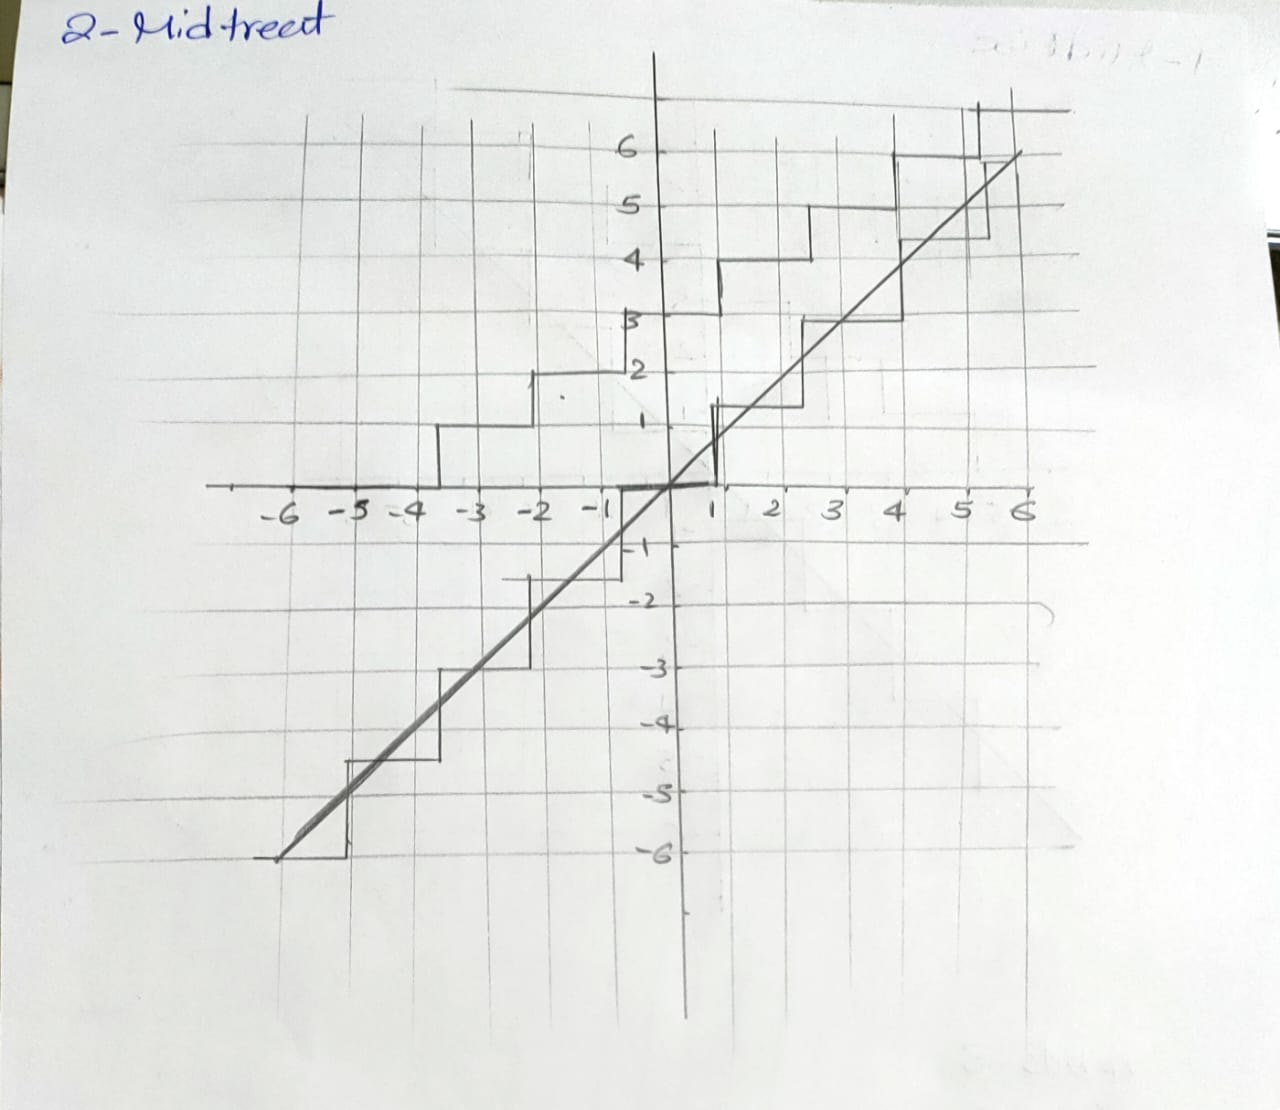 2-Midtreat
6
5
4
3
2
1
-6 -5 -4 -3 -2 -1 1 2 3 4 5 6
-1
-2
-3
-4
-5
-6